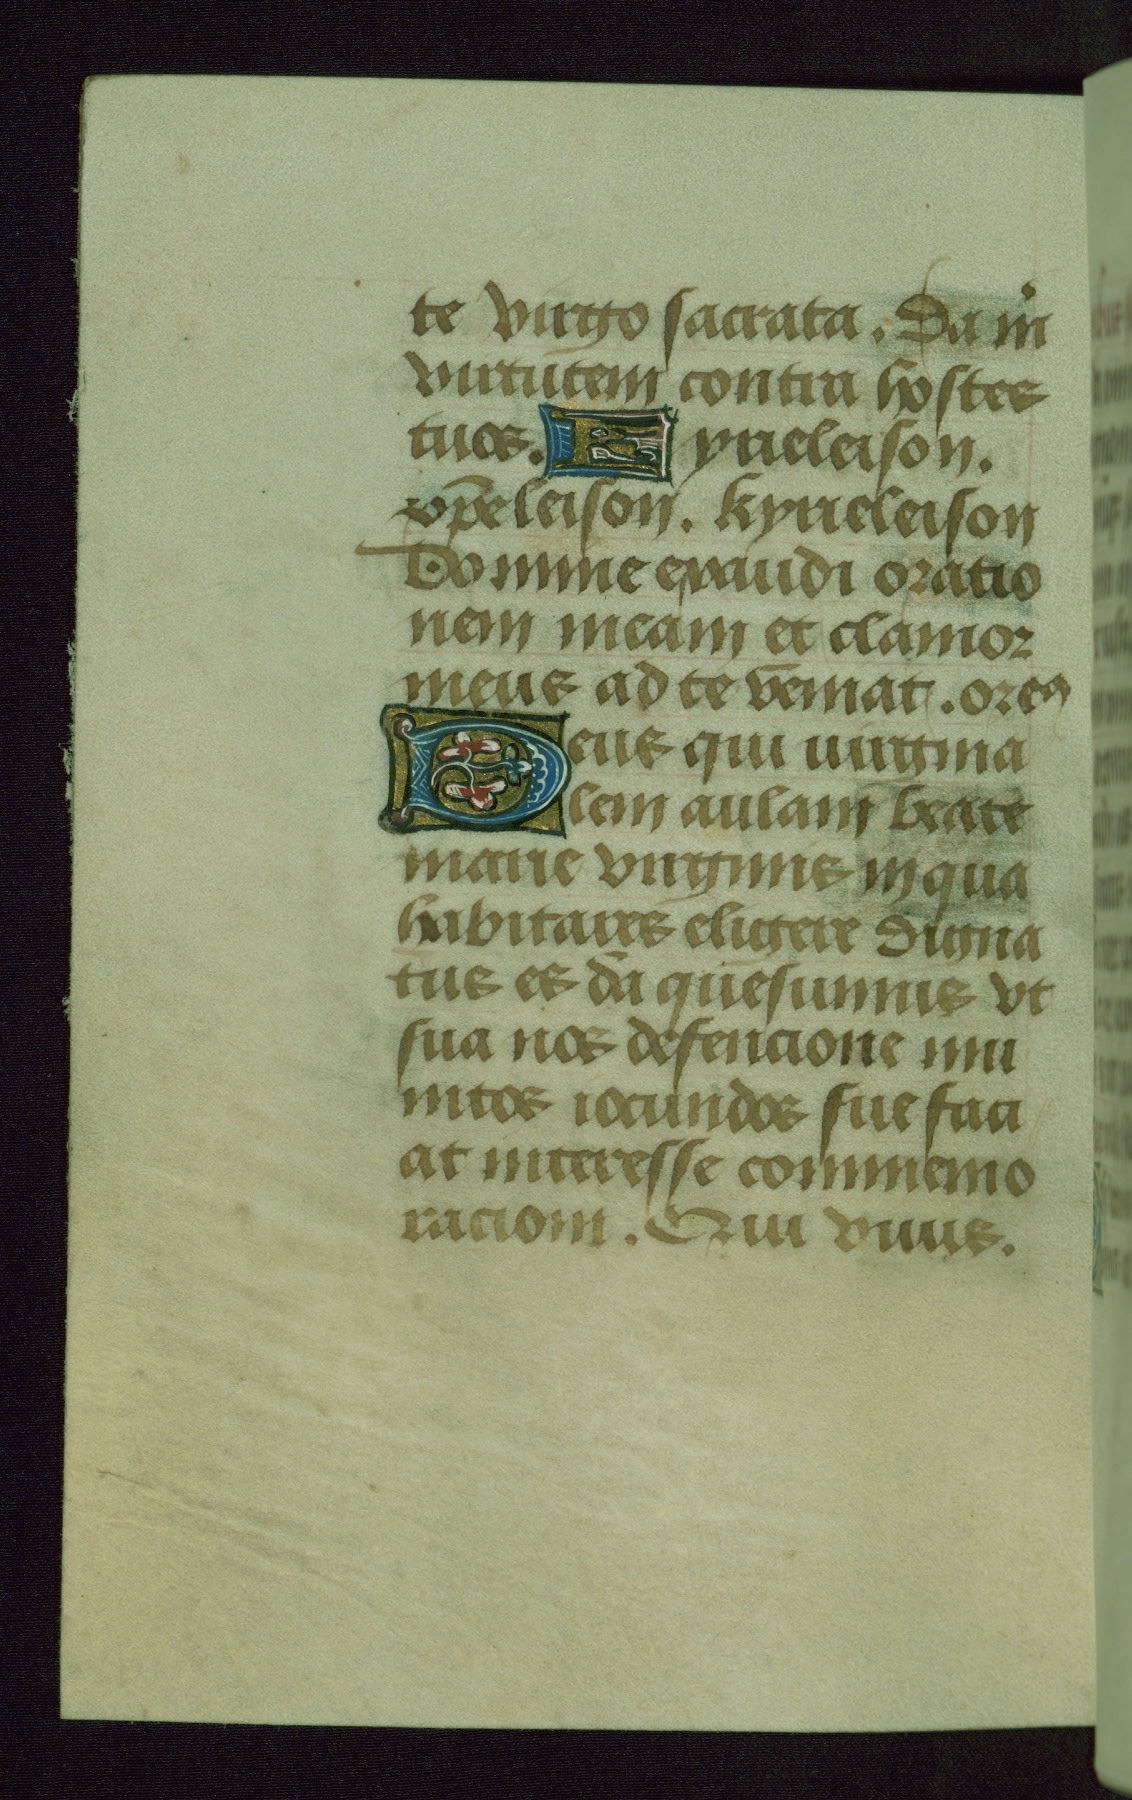 te virgo sacrata. Da m̍
virtutem contra hostes
tuos. Kyrieleison.
xp̄eleison. kyrieleison
Domine exaudi oratio
nem meam et clamor
meus ad te veniat. orem9
Deus qui uirgina
lem aulam beate
marie virginis in qua
habitares eligere digna
tus es da quesumus vt
sua nos defencione mu
nitos iocundos sue faci
at interesse commemo
racioni. Qui viuis.